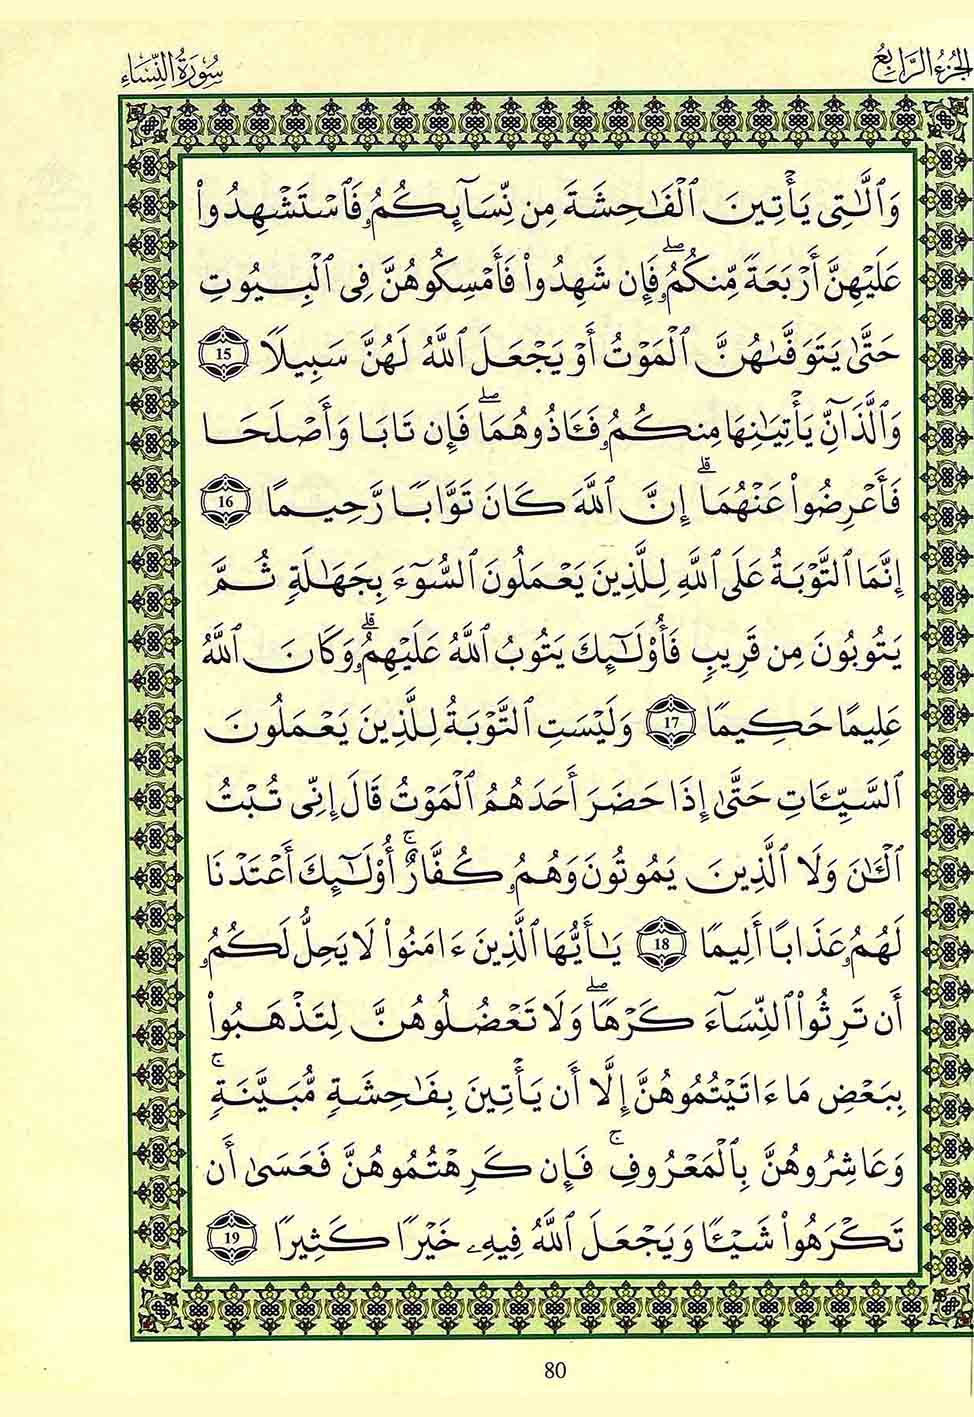 الجزء الرابع
سورة النساء
وَٱلَّٰتِى يَأۡتِينَ ٱلۡفَٰحِشَةَ مِن نِّسَآئِكُمُۥ فَٱسۡتَشۡهِدُواْ
عَلَيۡهِنَّ أَرۡبَعَةٗ مِّنكُمُۥۖ فَإِن شَهِدُواْ فَأَمۡسِكُوهُنَّ فِى ٱلۡبِيُوتِ
حَتَّىٰ يَتَوَفَّىٰهُنَّ ٱلۡمَوۡتُ أَوۡ يَجۡعَلَ ٱللَّهُ لَهُنَّ سَبِيلٗا 15
وَٱلَّذَآنِّ يَأۡتِيَٰنِهَا مِنكُمُۥ فَـَٔاذُوهُمَاۖ فَإِن تَابَا وَأَصۡلَحَا
فَأَعۡرِضُواْ عَنۡهُمَاۗ إِنَّ ٱللَّهَ كَانَ تَوَّابٗا رَّحِيمًا 16
إِنَّمَا ٱلتَّوۡبَةُ عَلَى ٱللَّهِ لِلَّذِينَ يَعۡمَلُونَ ٱلسُّوٓءَ بِجَهَٰلَةٖ ثُمَّ
يَتُوبُونَ مِن قَرِيبٖ فَأُوْلَٰٓئِكَ يَتُوبُ ٱللَّهُ عَلَيۡهِمُۥۗ وَكَانَ ٱللَّهُ
عَلِيمًا حَكِيمٗا 17 وَلَيۡسَتِ ٱلتَّوۡبَةُ لِلَّذِينَ يَعۡمَلُونَ
ٱلسَّيِّـَٔاتِ حَتَّىٰ إِذَا حَضَرَ أَحَدَهُمُ ٱلۡمَوۡتُ قَالَ إِنِّى تُبۡتُ
ٱلۡـَٰٔنَ وَلَا ٱلَّذِينَ يَمُوتُونَ وَهُمُۥ كُفَّارٌۚ أُوْلَٰٓئِكَ أَعۡتَدۡنَا
لَهُمُۥ عَذَابًا أَلِيمٗا 18 يَٰٓأَيُّهَا ٱلَّذِينَ ءَامَنُواْ لَا يَحِلُّ لَكُمُۥ
أَن تَرِثُواْ ٱلنِّسَآءَ كَرۡهٗاۖ وَلَا تَعۡضُلُوهُنَّ لِتَذۡهَبُواْ
بِبَعۡضِ مَا ءَاتَيۡتُمُوهُنَّ إِلَّا أَن يَأۡتِينَ بِفَٰحِشَةٖ مُّبَيَّنَةٖۚ
وَعَاشِرُوهُنَّ بِٱلۡمَعۡرُوفِۚ فَإِن كَرِهۡتُمُوهُنَّ فَعَسَىٰ أَن
تَكۡرَهُواْ شَيۡـٔٗا وَيَجۡعَلَ ٱللَّهُ فِيهِۦ خَيۡرٗا كَثِيرٗا 19
80